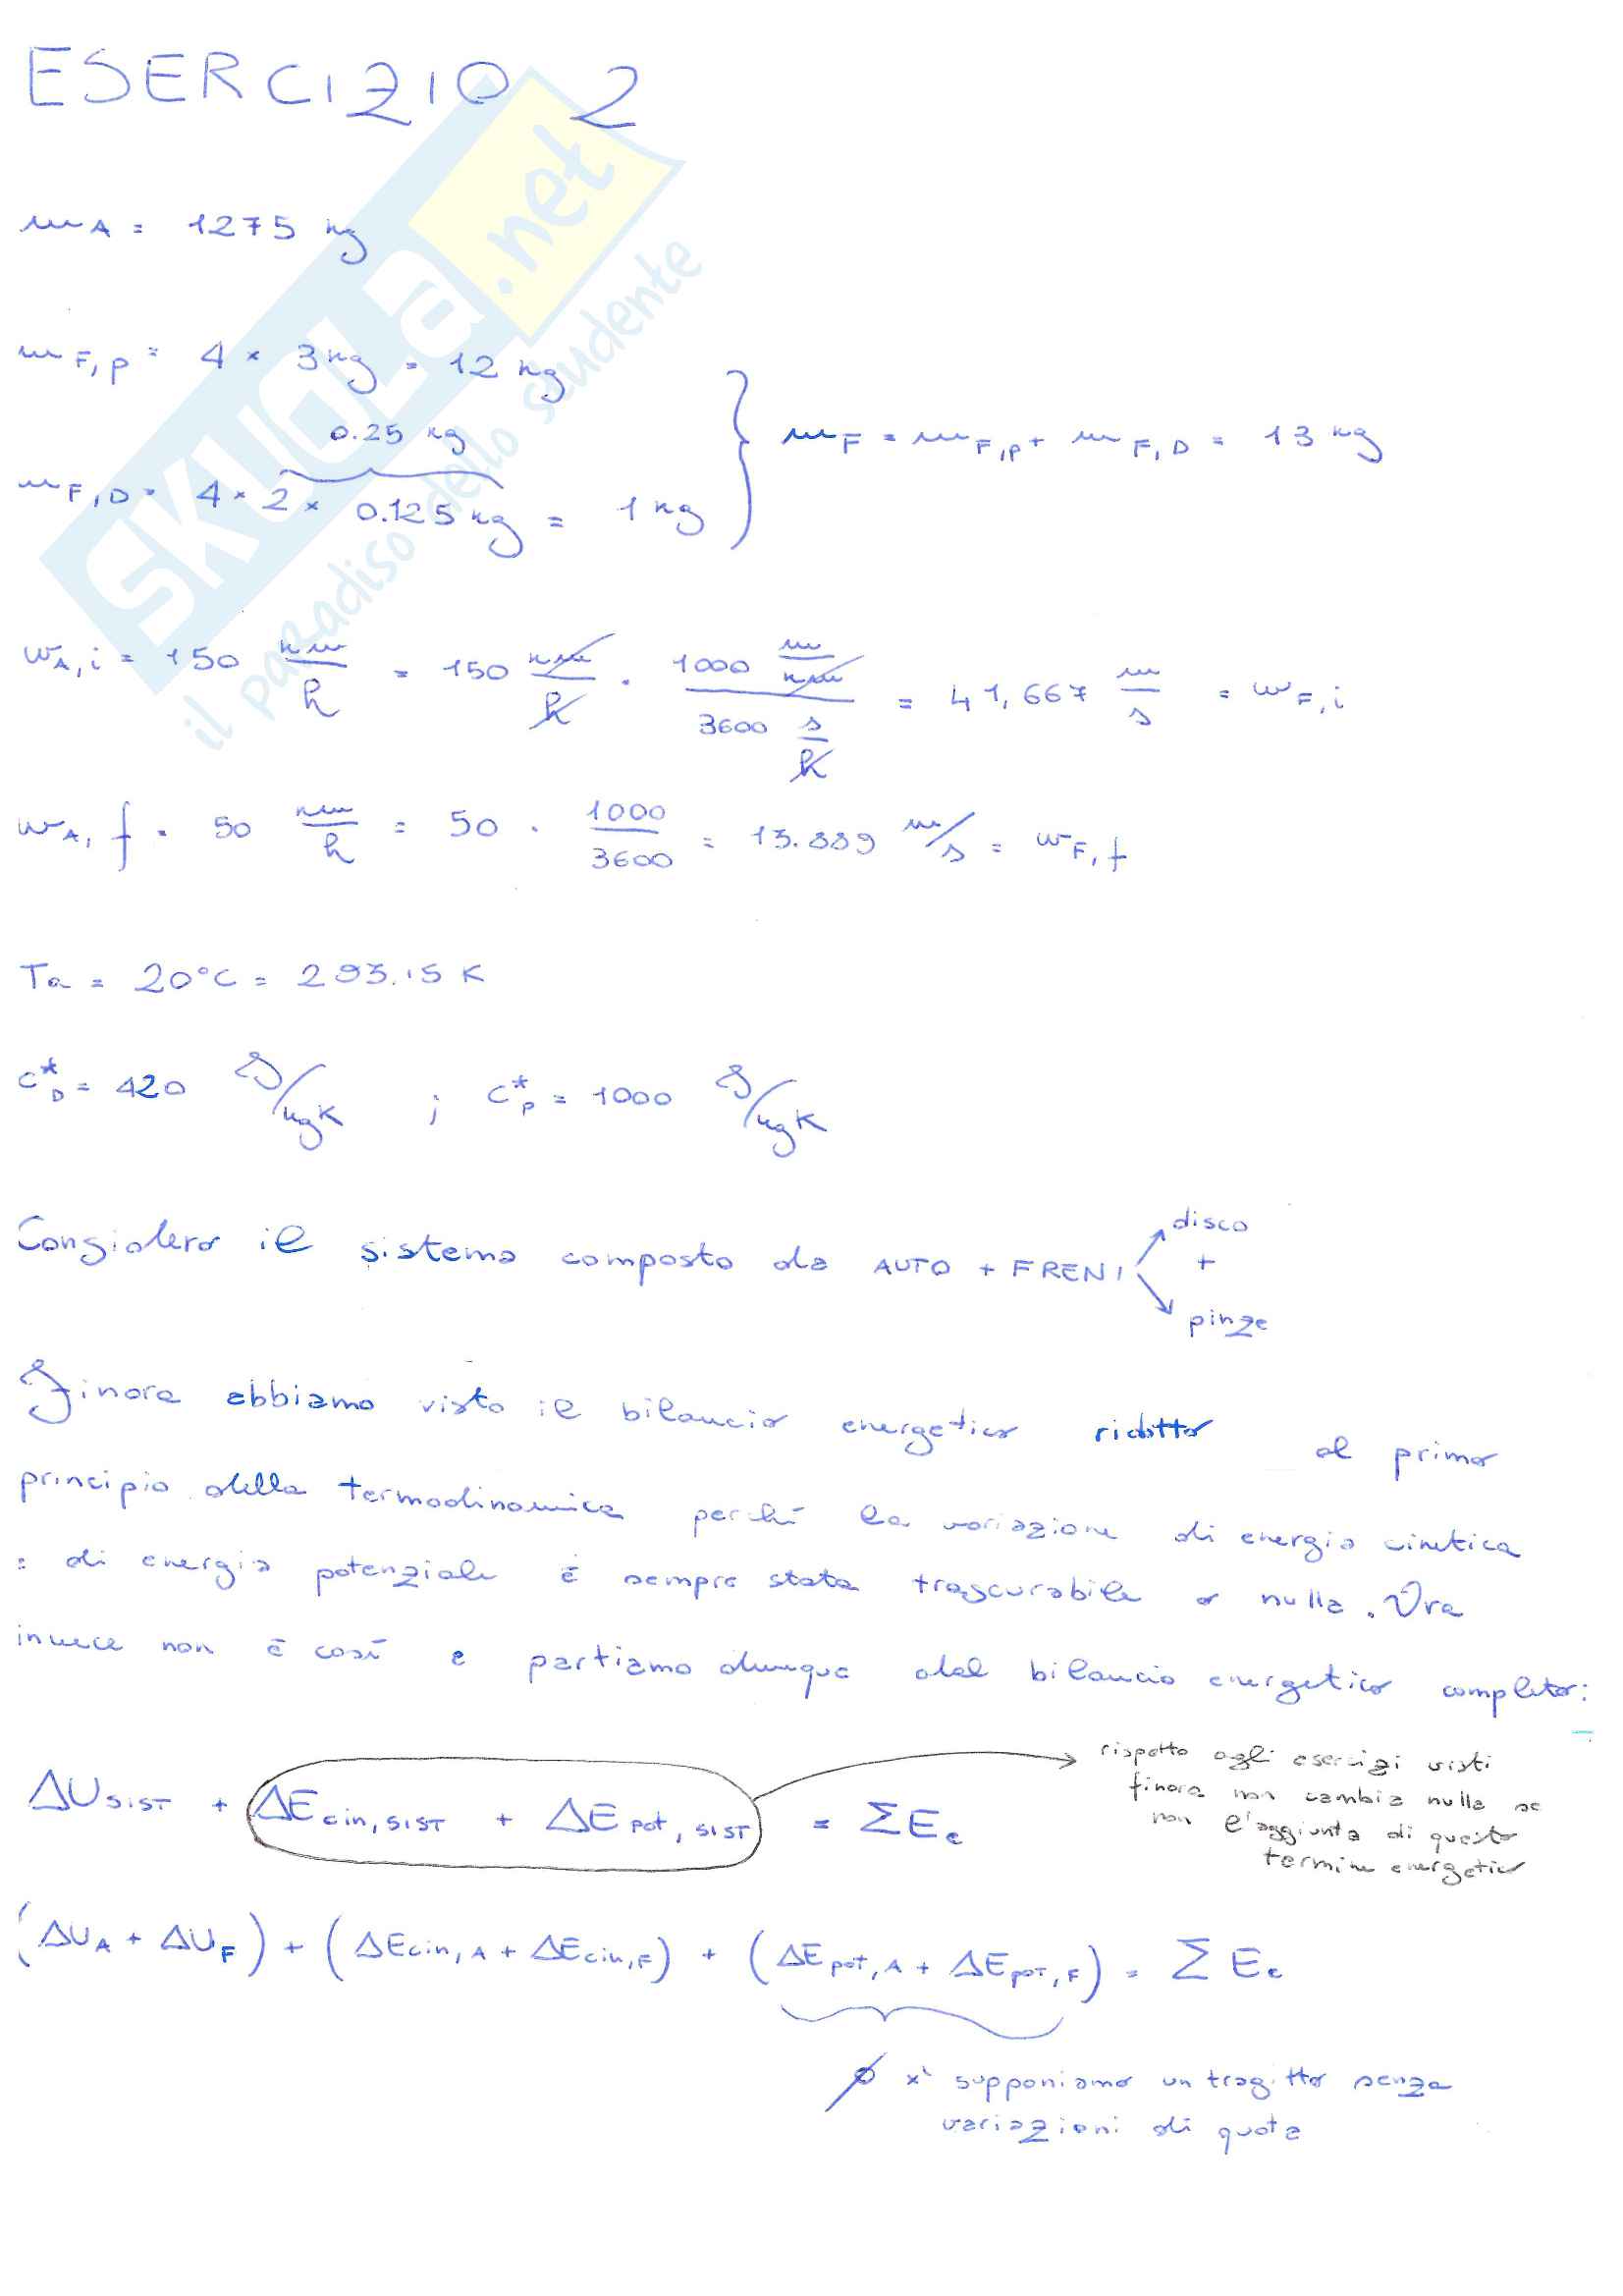 ESERCIZIO 2
SKUOLA.net
il paradiso dello studente
m_A = 1275 kg
m_F,P = 4 × 3 kg = 12 kg
0.25 kg
m_F,D = 4 × 2 × 0.125 kg = 1 kg } m_F = m_F,P + m_F,D = 13 kg
w_A,i = 150 km/h = 150 km/h · (1000 m/km)/(3600 s/h) = 41,667 m/s = w_F,i
w_A,f = 50 km/h = 50 · 1000/3600 = 13.889 m/s = w_F,f
Ta = 20°C = 293.15 K
c*_D = 420 J/kgK ; c*_P = 1000 J/kgK
disco
Considero il sistema composto da AUTO + FRENI +
pinze
Finora abbiamo visto il bilancio energetico ridotto al primo
principio della termodinamica perchè la variazione di energia cinetica
e di energia potenziale è sempre stata trascurabile o nulla. Ora
invece non è così e partiamo dunque dal bilancio energetico completo:
rispetto agli esercizi visti
finora non cambia nulla se
non l'aggiunta di questo
termine energetico
ΔU_SIST + ΔE_cin,SIST + ΔE_pot,SIST = ΣE_e
(ΔU_A + ΔU_F) + (ΔE_cin,A + ΔE_cin,F) + (ΔE_pot,A + ΔE_pot,F) = ΣE_e
∅ x' supponiamo un tragitto senza
variazioni di quota